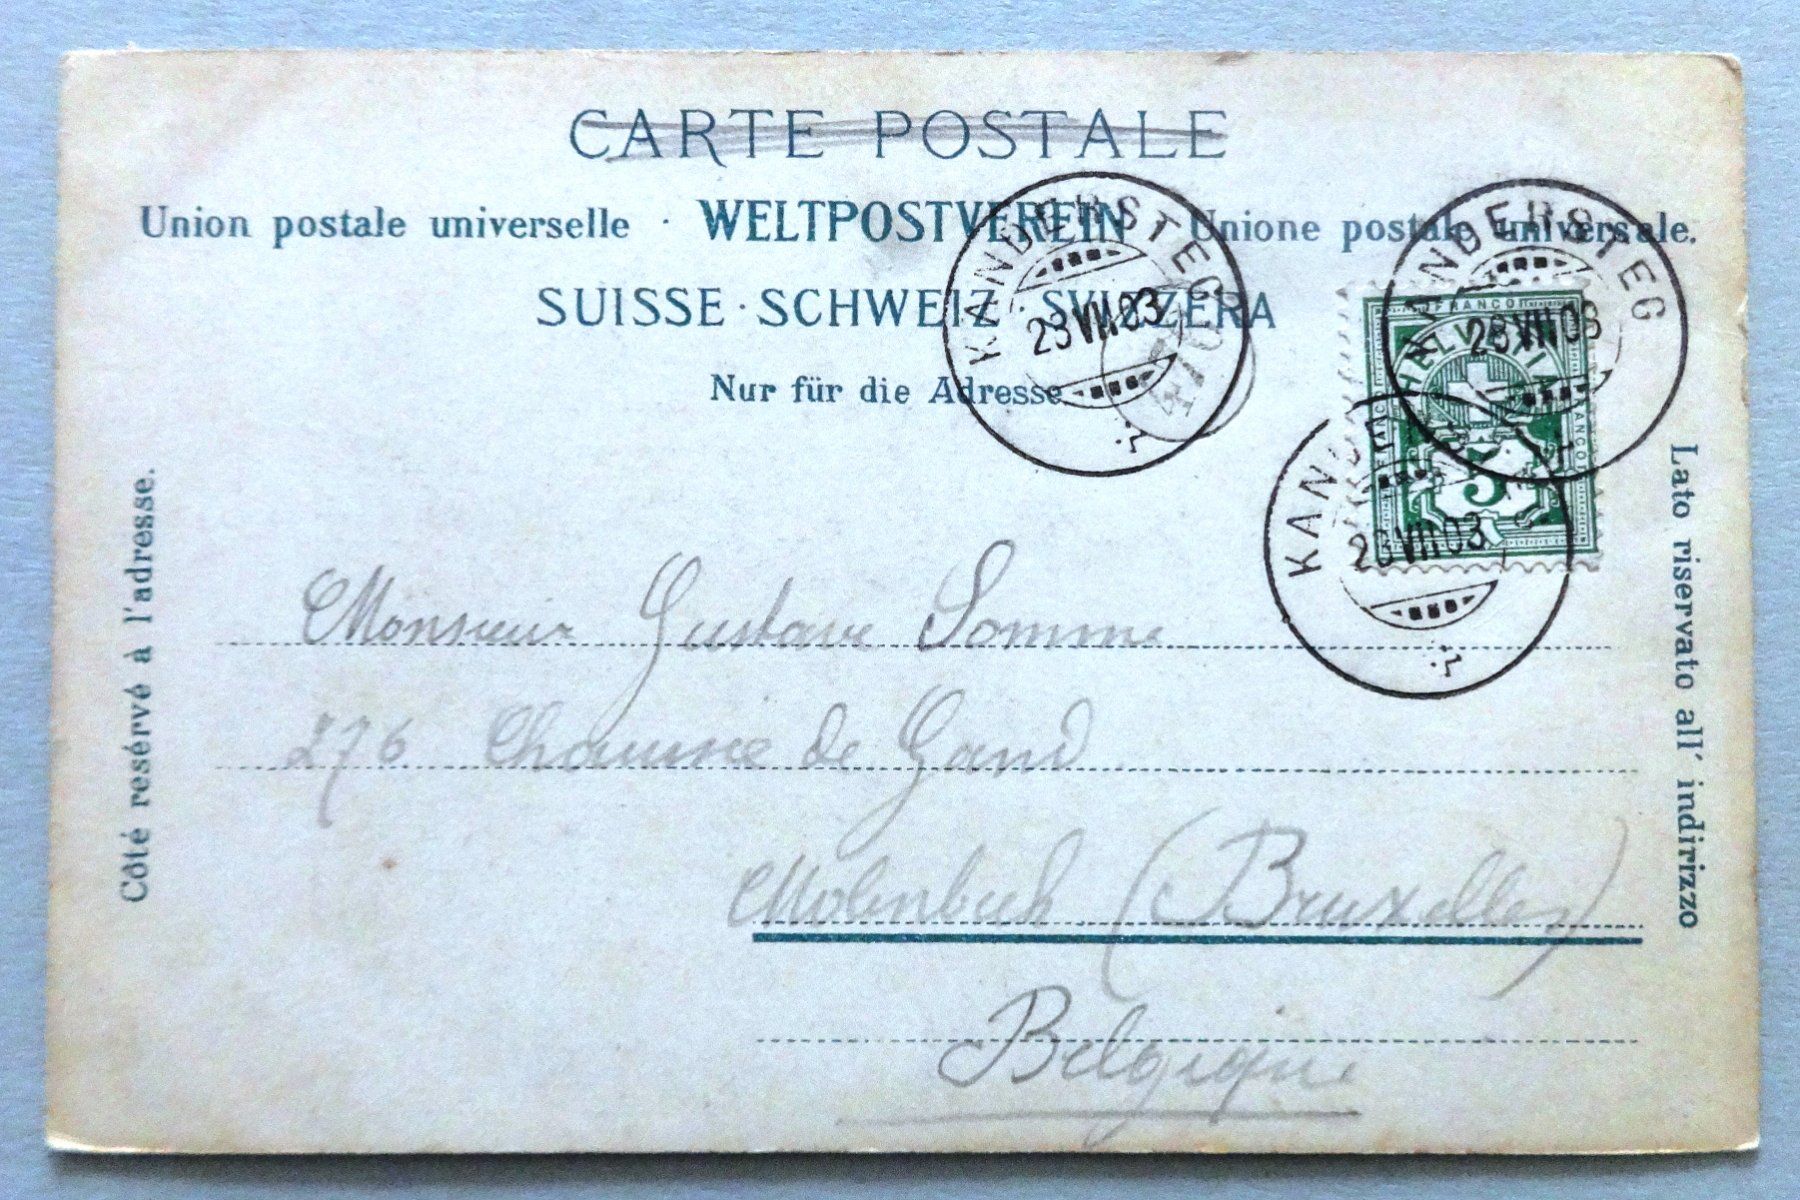 CARTE POSTALE
Union postale universelle · WELTPOSTVEREIN · Unione postale universale.
SUISSE · SCHWEIZ · SVIZZERA
Nur für die Adresse
KANDERSTEG
23 VII 03
KANDERSTEG
23 VII 03
KANDERSTEG
23 VII 03
FRANCO
HELVETIA
5
Côté reservé à l'adresse.
Lato riservato all' indirizzo
Monsieur Gustave Somme
276 Chaussée de Gand
Molenbeek (Bruxelles)
Belgique